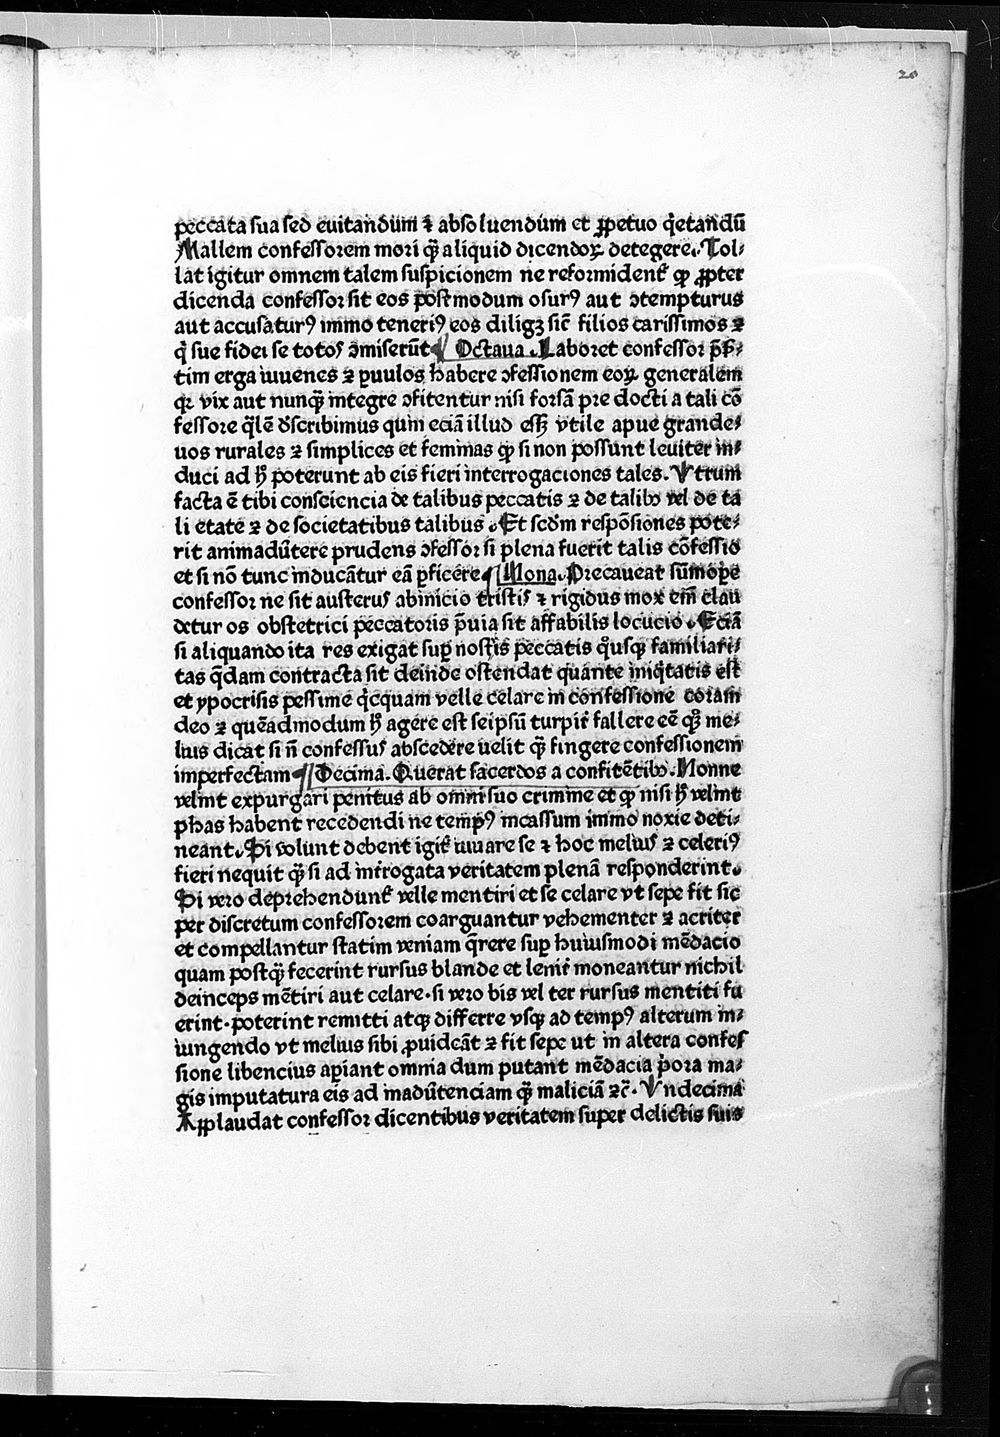 20
peccata sua sed euitandum ⁊ absoluendum et ꝓpetuo q̇etandū
Mallem confessorem mori qͣ̄ aliquid dicendoꝝ detegere. Tol-
lat igitur omnem talem suspicionem ne reformident᷑ ꝙ ꝓpter
dicenda confessor sit eos postmodum osurꝰ aut ↄtempturus
aut accusaturꝰ immo teneriꝰ eos diligꝫ sic̄ filios carissimos ⁊
q̇ sue fidei se totos ↄmiserūt ¶ Octaua. Laboret confessor p̄ſ-
tim erga iuuenes ⁊ ꝑuulos habere ↄfessionem eoꝝ generalem
qꝛ vix aut nunqͣ̄ integre ↄfitentur nisi forsā pre docti a tali cō
fessore q̄lē d'scribimus quin eciā illud eſꝫ vtile apue grande-
uos rurales ⁊ simplices et feminas ꝙ si non possunt leuiter in-
duci ad hꝰ poterunt ab eis fieri interrogaciones tales. Vtrum
facta ē tibi consciencia de talibus peccatis ⁊ de talibꝰ vel de ta
li etate ⁊ de societatibus talibus. Et scd̄m respōsiones pote-
rit animadūtere prudens ↄfessor si plena fuerit talis cōfessio
et si nō tunc inducātur eā ꝑficere ¶ Nona. Precaueat sūmope
confessor ne sit austerus abinicio tristis ⁊ rigidus mox em̄ clau
detur os obstetrici peccatoris p̄uia sit affabilis locucio. Eciā
si aliquando ita res exigat suꝑ nost̄is peccatis qͦusqꝫ familiari-
tas q̄dam contracta sit deinde ostendat quante iniq̇tatis est
et ypocrisis pessime q̇cquam velle celare in confessione coram
deo ⁊ quēadmodum hꝰ agere est seipsū turpit᷑ fallere eē qꝫ me-
lius dicat si n̄ confessus abscedere uelit qͣ̄ fingere confessionem
imperfectam ¶ Decima. Querat sacerdos a confitētibꝰ. Nonne
velint expurgari penitus ab omni suo crimine et ꝙ nisi hꝰ velint
phas habent recedendi ne tempꝰ incassum immo noxie deti-
neant. Si volunt debent igit᷑ iuuare se ⁊ hoc melius ⁊ celeriꝰ
fieri nequit qͣ̄ si ad int᷑rogata veritatem plenā responderint.
Si vero deprehendunt᷑ velle mentiri et se celare vt sepe fit sic
per discretum confessorem coarguantur vehementer ⁊ acriter
et compellantur statim veniam q̄rere suꝑ huiusmodi mēdacio
quam postqͣ̄ fecerint rursus blande et lenit᷑ moneantur nichil
deinceps mētiri aut celare. si vero bis vel ter rursus mentiti fu
erint. poterint remitti atqꝫ differre vsqꝫ ad tempꝰ alterum in-
iungendo vt melius sibi ꝓuideāt ⁊ fit sepe ut in altera confes
sione libencius aꝑiant omnia dum putant mēdacia ṗora ma-
gis imputatura eis ad inadūtenciam qͣ̄ maliciā ⁊c̄. Vndecima
Applaudat confessor dicentibus veritatem super delictis suis